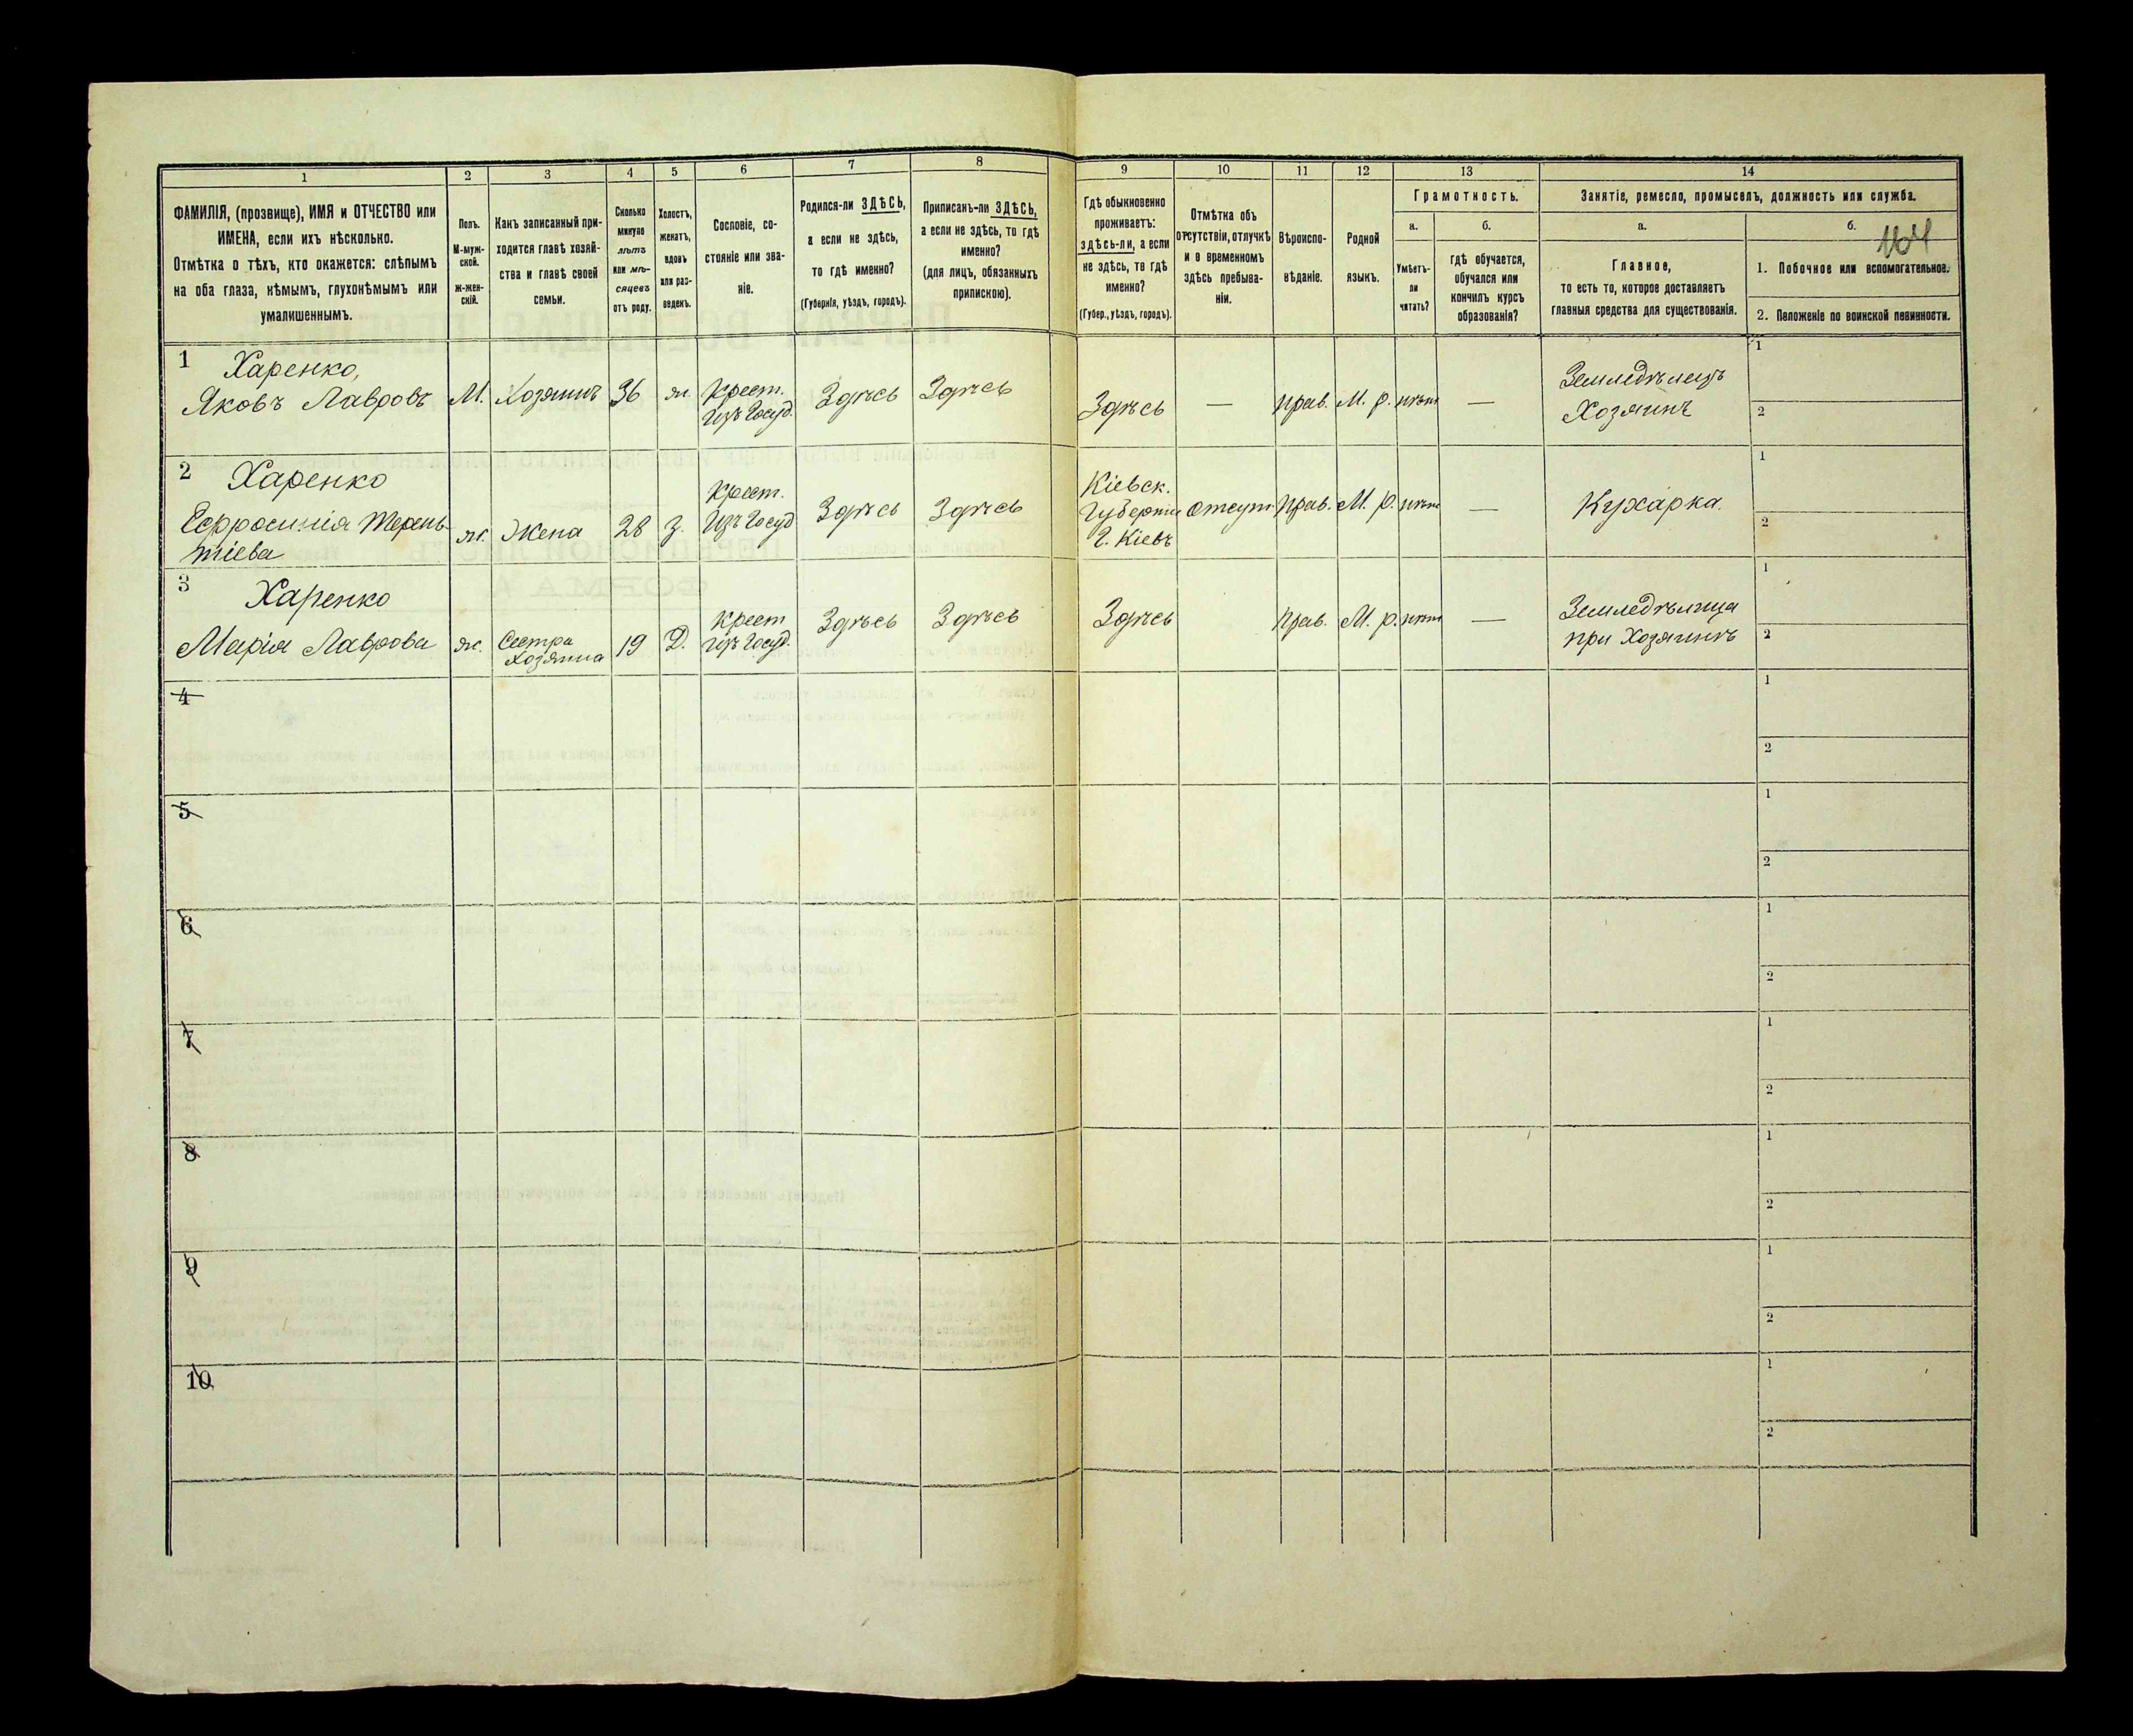 1
2
3
4
5
6
7
8
ФАМИЛІЯ, (прозвище), ИМЯ и ОТЧЕСТВО или
ИМЕНА, если ихъ нѣсколько.
Отмѣтка о тѣхъ, кто окажется: слѣпымъ
на оба глаза, нѣмымъ, глухонѣмымъ или
умалишеннымъ.
Полъ.
М-муж-
ской.
ж-жен-
скій.
Какъ записанный при-
ходится главѣ хозяй-
ства и главѣ своей
семьи.
Сколько
минуло
лѣтъ
или мѣ-
сяцевъ
отъ роду.
Холостъ,
женатъ,
вдовъ
или раз-
веденъ.
Сословіе, со-
стояніе или зва-
ніе.
Родился-ли ЗДѢСЬ,
а если не здѣсь,
то гдѣ именно?
(Губернія, уѣздъ, городъ).
Приписанъ-ли ЗДѢСЬ,
а если не здѣсь, то гдѣ
именно?
(для лицъ, обязанныхъ
припискою).
9
10
11
12
13
14
Гдѣ обыкновенно
проживаетъ:
здѣсь-ли, а если
не здѣсь, то гдѣ
именно?
(Губер., уѣздъ, городъ).
Отмѣтка объ
отсутствіи, отлучкѣ
и о временномъ
здѣсь пребыва-
ніи.
Вѣроиспо-
вѣданіе.
Родной
языкъ.
Грамотность.
а.
б.
Умѣетъ-
ли
читать?
гдѣ обучается,
обучался или
кончилъ курсъ
образованія?
Занятіе, ремесло, промыселъ, должность или служба.
а.
б.
164
Главное,
то есть то, которое доставляетъ
главныя средства для существованія.
1. Побочное или вспомогательное.
2. Положеніе по воинской повинности.
1
Харенко,
Яковъ Лавровъ
М.
Хозяинъ
36
ж.
Крест.
Изъ Госуд.
Здѣсь
Здѣсь
Здѣсь
—
прав.
М. р.
нѣтъ
—
Земледѣлецъ
Хозяинъ
1
2
2
Харенко
Ефросинія Терень-
тіева
ж.
Жена
28
З.
Крест.
Изъ Госуд
Здѣсь
Здѣсь
Кіевск.
Губерніи
Г. Кіевъ
отсут.
прав.
М. р.
нѣтъ
—
Кухарка.
1
2
3
Харенко
Марія Лаврова
ж.
Сестра
Хозяина
19
Д.
Крест
Изъ Госуд.
Здѣсь
Здѣсь
Здѣсь
прав.
М. р.
нѣтъ
—
Земледѣлица
при Хозяинѣ
1
2
4
1
2
5
1
2
6
1
2
7
1
2
8
1
2
9
1
2
10
1
2